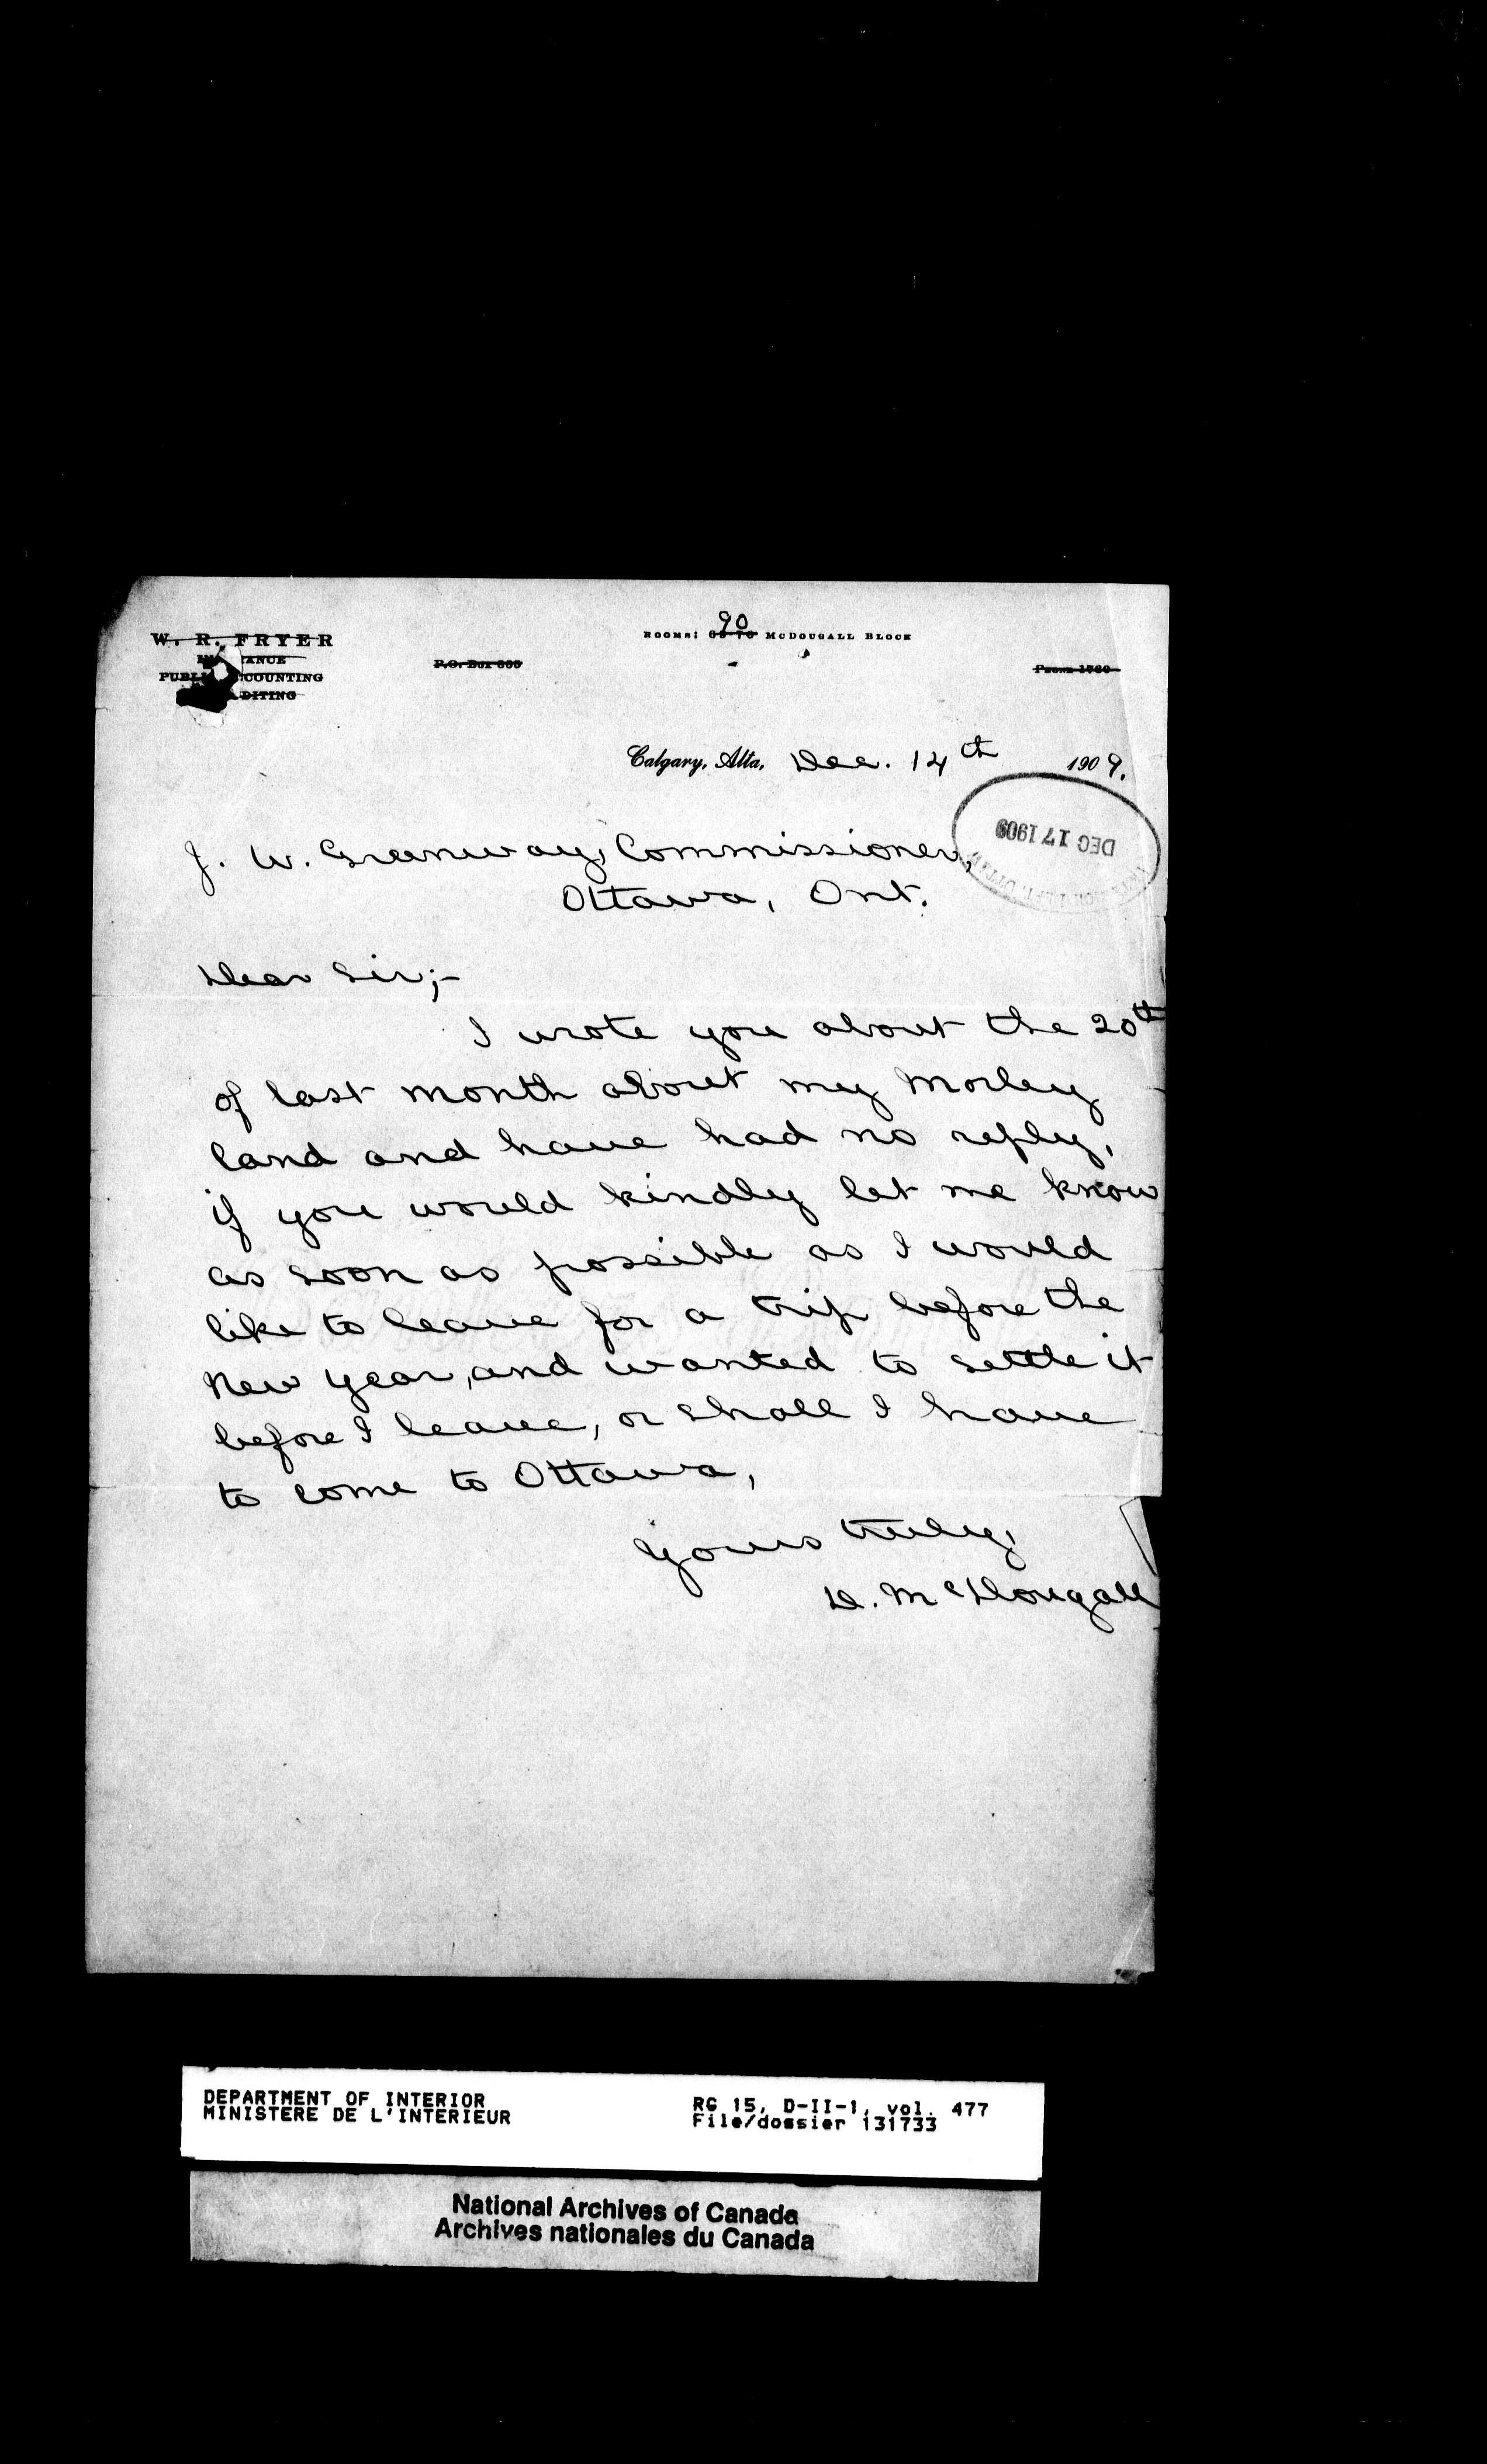 W. R. FRYER
PUBLIC ACCOUNTING
P.O. Box
90
ROOMS: MCDOUGALL BLOCK
PHONE 1760
Calgary, Alta, Dec. 14th 1909.
DEC 17 1909
J. W. Greenway, Commissioner,
Ottawa, Ont.
Dear Sir;-
I wrote you about the 20th
of last month about my Morley
land and have had no reply,
if you would kindly let me know
as soon as possible as I would
like to leave for a trip before the
New Year, and wanted to settle it
before I leave, or shall I have
to come to Ottawa,
Yours truly,
D. McDougall
DEPARTMENT OF INTERIOR
MINISTERE DE L'INTERIEUR
RG 15, D-II-1, vol. 477
File/dossier 131733
National Archives of Canada
Archives nationales du Canada